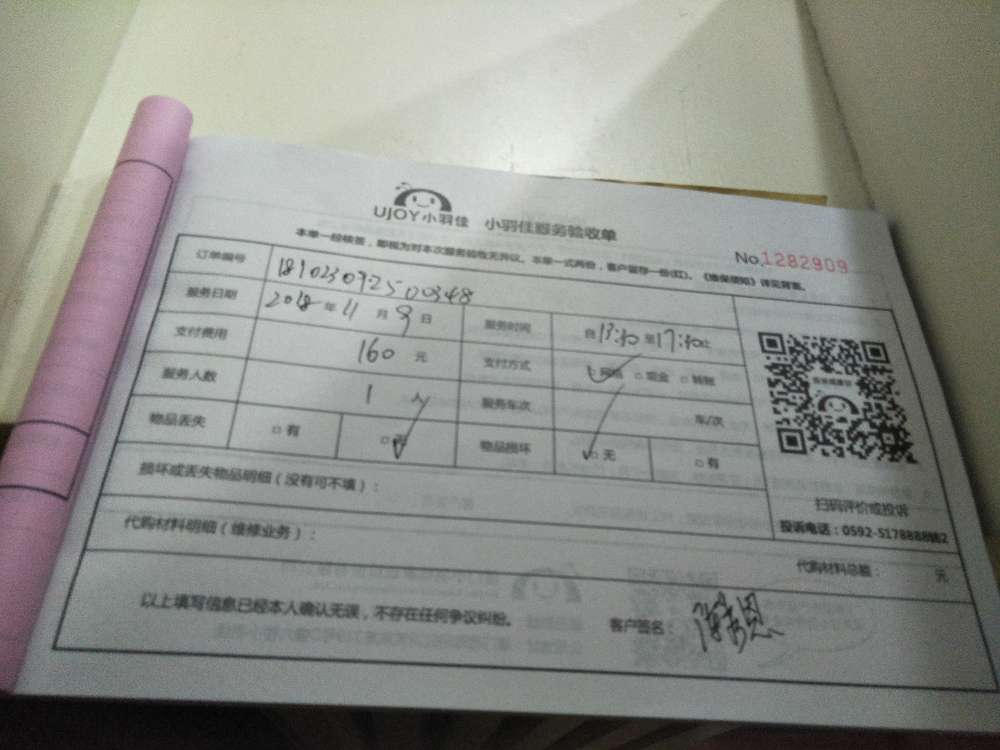 UJOY小羽佳 小羽佳服务验收单
No.1282909
本单一经核签，即视为对本次服务验收无异议。本单一式两份，客户留存一份(红)。《维保须知》详见背面。
订单编号 181023092500348
服务日期 2018年11月9日 服务时间 自13:30至17:30止
支付费用 160元 支付方式 □网络 □现金 □转账
服务人数 1人 服务车次 车/次
物品丢失 □有 □无 物品损坏 □无 □有
扫码评价或投诉
损坏或丢失物品明细（没有可不填）：
投诉电话：0592-5178888转2
代购材料明细（维修业务）：
代购材料总额： 元
以上填写信息已经本人确认无误，不存在任何争议纠纷。 客户签名：